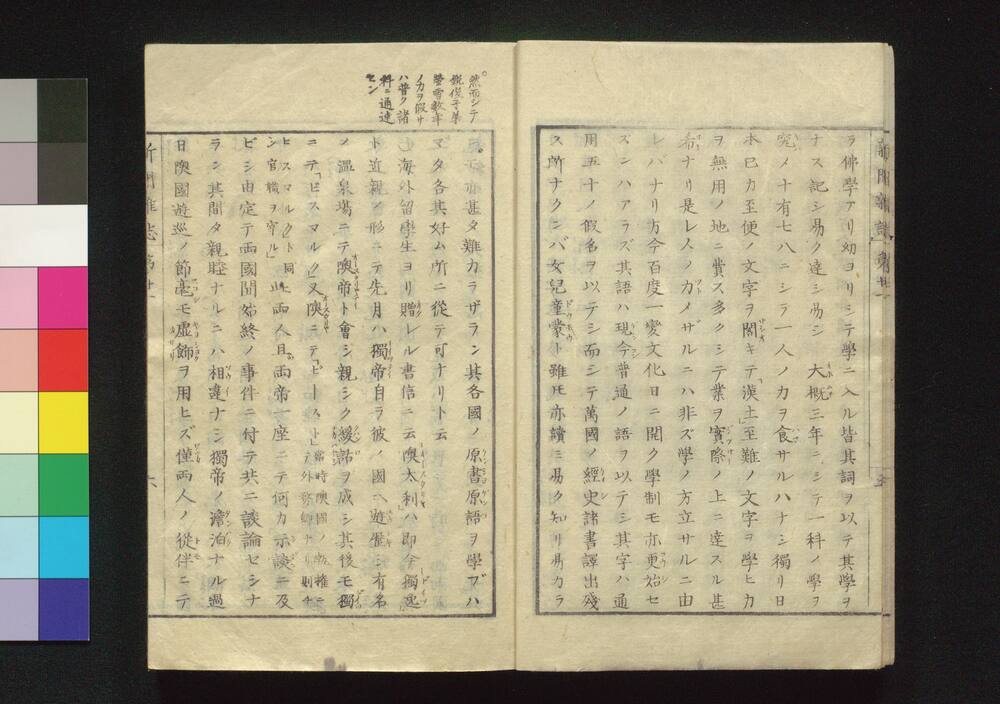 ラ佛學アリ幼ヨリシテ學ニ入ル皆其詞ヲ以テ其學ヲ
ナス記シ易ク達シ易シ大概三年ニシテ一科ノ學ヲ
究メ十有七八ニシテ一人ノ力ヲ食サルハナシ獨リ日
本已カ至便ノ文字ヲ閣キテ「漢土」至難ノ文字ヲ學ヒ力
ヲ無用ノ地ニ費ス多クシテ業ヲ實際ノ上ニ達スル甚
希ナリ是レ人ノ力メザルニハ非ズ學ノ方立サルニ由
レバナリ方今百度一變文化日ニ開ク學制モ亦更始セ
ズンハアラズ其語ハ現今普通ノ語ヲ以テシ其字ハ通
用五十ノ假名ヲ以テシ而シテ萬國ノ經史諸書譯出殘
ス所ナクンバ女兒童蒙ト雖𪜈亦讀ミ易ク知リ易カラ
然而シテ
俊子弟
螢雪數年
ノ力ヲ假サ
ハ普ク諸
科ニ通達
セン
モ亦甚タ難カラザラン其各國ノ原書原語ヲ學ブハ
マタ各其好ム所ニ從テ可ナリト云
海外留學生ヨリ贈レル書信ニ云「澳太利」ハ即今「獨逸」
ト近親ノ形ニテ先月ハ獨帝自ラ彼ノ國ヘ遊歷シ有名
ノ溫泉場ニテ澳帝ト會シ親シク緩話ヲ成シ其後モ獨
ニテ「ビスマルク」又澳ニテ「ビースト」當時澳國ノ
ヒスマルクト同シ此兩人且兩帝一座ニテ何カ示談ニ及
ビシ由定テ兩國開始終ノ事件ニ付テ共ニ談論セシナ
ラン其間タ親睦ナルニハ相違ナシ獨帝ノ澹泊ナル過
日澳國遊巡ノ節毫モ虛飾ヲ用ヒズ僅兩人ノ從伴ニテ